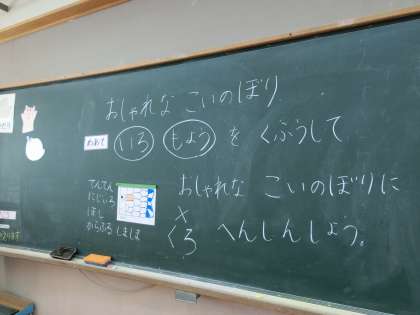 おしゃれな こいのぼり
めあて いろ もよう を くふうして
おしゃれな こいのぼりに
× くろ へんしんしよう。
てんてん
にじいろ
ほし
からふる しましま